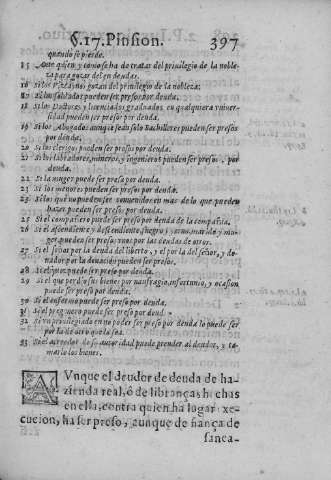 §.17. Prision. 397
quando se pierde.
15 Ante quien y como se ha de tratar del privilegio de la noble
za para gozar del en deudas.
16 Si los gozan del privilegio de la nobleza:
17 Si los soldados pueden ser presos por deuda.
18 Si los Doctores y licenciados graduados en qualquiera univer
sidad pueden ser presos por deuda
19 Si los Abogados aunque sean solo Bachilleres pueden ser presos
por deuda.
20 Si los clerigos pueden ser presos por deuda.
21 Si los labradores, mineros, y ingenieros pueden ser presos por
deuda.
22 Si la muger puede ser presa por deuda.
23 Si los menores pueden ser presos por deuda.
25 Si los que no pueden ser convenidos en mas de lo que pueden
hazer pueden ser presos por deuda.
25 Si el compañero puede ser preso por deuda de la compañia.
26 Si el ascendiente y descendiente suegro y yerno, marido y mu
ger pueden ser presos unos por las deudas de otros.
27 Si el señor por la deuda del liberto, y el por la del señor, y do
nador por la donacion pueden ser presos.
28 Si el juez puede ser preso por deuda.
29 Si el que perdio sus bienes por naufragio, infortunio, y ocasion
puede ser preso por deuda.
30 Si el enfermo puede ser preso por deuda.
31 Si el pregonero puede ser preso por deud
32 Si un privilegiado en no poder ser preso por deuda lo puede ser
por la de otro que lo sea.
33 Si el acreedor de su autoridad puede prender al deudor, y to
marle los bienes.
AVnque el deudor de deuda de ha-
zienda real, ô de libranças hechas
en ella, contra quien ha lugar exe-
cucion, ha ser preso, aunque de fiança de
sanea-